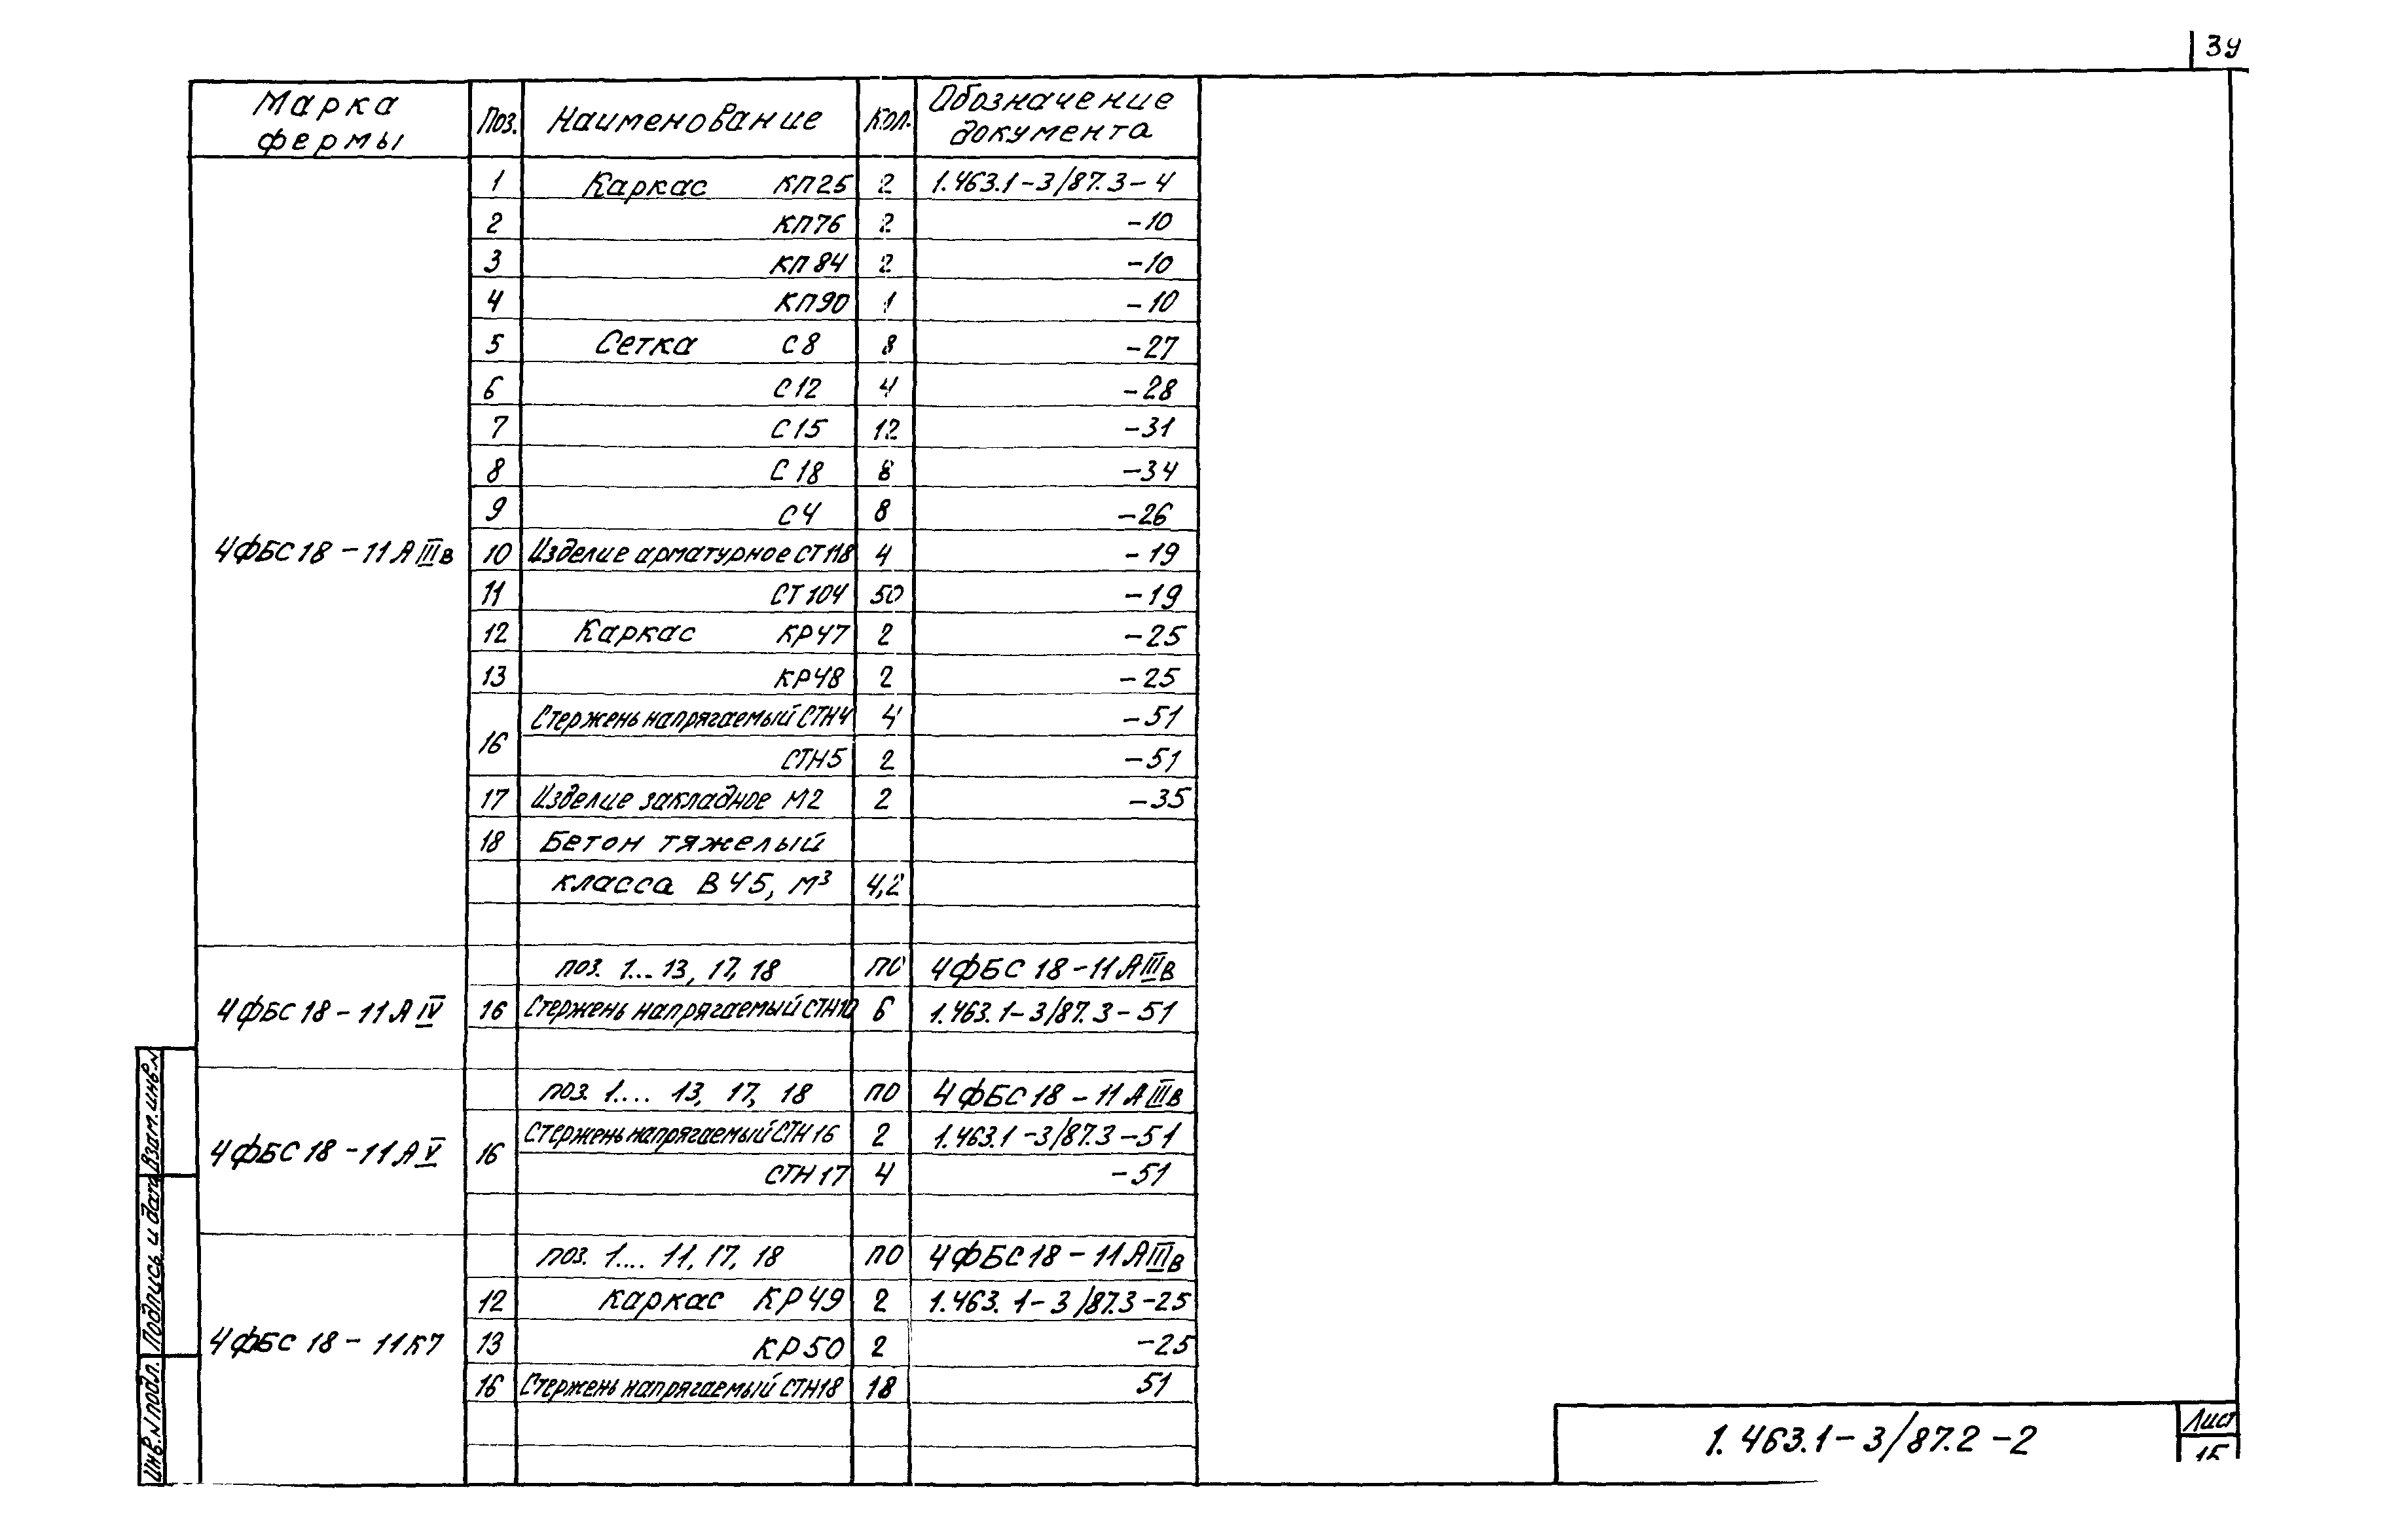 39
Марка фермы Поз. Наименование Кол. Обозначение документа
1 Каркас КП25 2 1.463.1-3/87.3-4
2 КП76 2 -10
3 КП84 2 -10
4 КП90 1 -10
5 Сетка С8 8 -27
6 С12 4 -28
7 С15 12 -31
8 С18 8 -34
9 С4 8 -26
4ФБС18-11АIIIв 10 Изделие арматурное СТ118 4 -19
11 СТ104 50 -19
12 Каркас КР47 2 -25
13 КР48 2 -25
16 Стержень напрягаемый СТН4 4 -51
СТН5 2 -51
17 Изделие закладное М2 2 -35
18 Бетон тяжелый
класса В45, м³ 4,2
поз. 1...13, 17, 18 по 4ФБС18-11АIIIв
4ФБС18-11АIV 16 Стержень напрягаемый СТН10 6 1.463.1-3/87.3-51
поз. 1....13, 17, 18 по 4ФБС18-11АIIIв
4ФБС18-11АV 16 Стержень напрягаемый СТН16 2 1.463.1-3/87.3-51
СТН17 4 -51
поз. 1....11, 17, 18 по 4ФБС18-11АIIIв
12 каркас КР49 2 1.463.1-3/87.3-25
4ФБС18-11К7 13 КР50 2 -25
16 Стержень напрягаемый СТН18 18 51
Инв.N подл. Подпись и дата Взам.инв.N
1.463.1-3/87.2-2
Лист
15